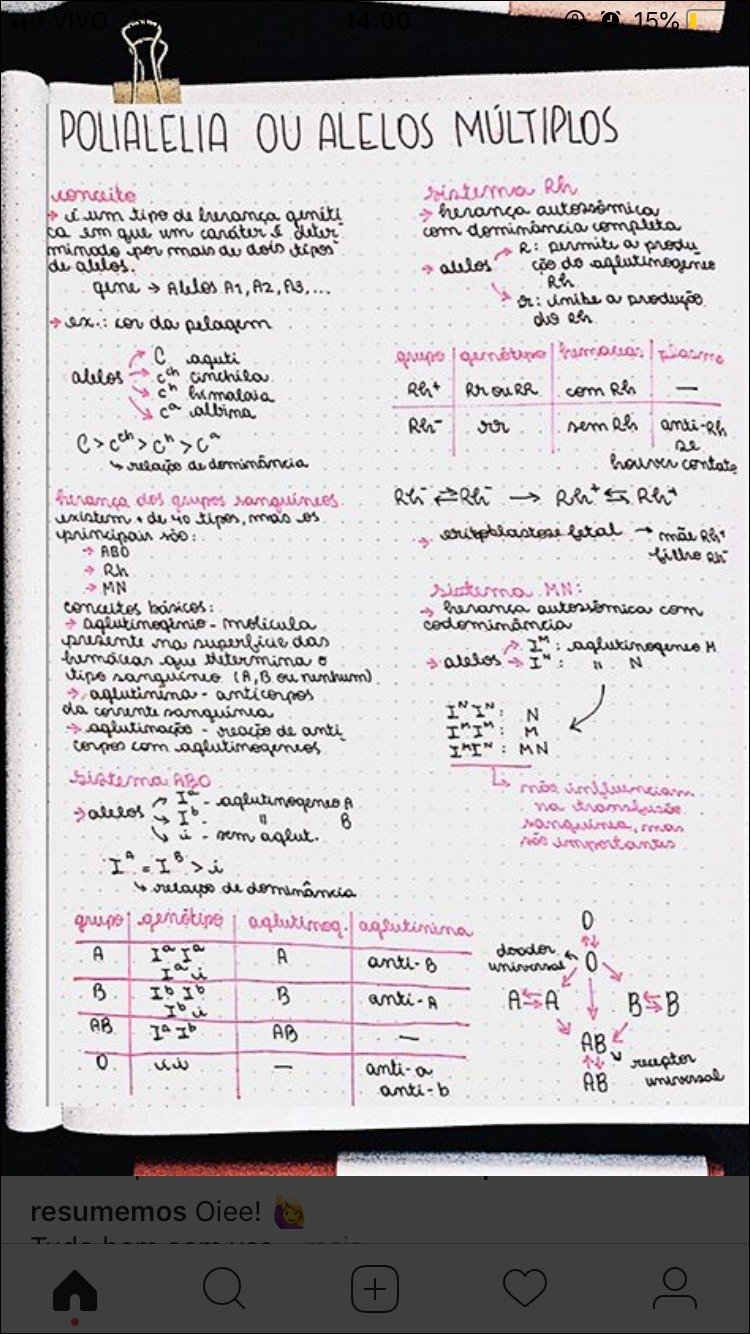 VIVO 3G 14:00 15%
POLIALELIA OU ALELOS MÚLTIPLOS
conceito
→ é um tipo de herança genéti
ca em que um caráter é deter
minado por mais de dois tipos
de alelos.
gene → Alelos A1, A2, A3, ...
→ ex.: cor da pelagem
alelos
C aguti
c^ch chinchila
c^h himalaia
c^a albina
C > c^ch > c^h > c^a
↳ relação de dominância
herança dos grupos sanguíneos
existem + de 40 tipos, mas os
principais são:
→ ABO
→ Rh
→ MN
conceitos básicos:
→ aglutinogênio - molécula
presente na superfície das
hemácias que determina o
tipo sanguíneo (A, B ou nenhum)
→ aglutinina - anticorpos
da corrente sanguínea
→ aglutinação - reação de anti
corpos com aglutinogeneos
sistema ABO
→ alelos
→ I^a - aglutinogeneo A
→ I^b - " B
→ i - sem aglut.
I^A = I^B > i
↳ relação de dominância
grupo | genótipo | aglutinog. | aglutinina
A | I^a I^a | A | anti-B
I^a i
B | I^b I^b | B | anti-A
I^b i
AB | I^a I^b | AB | —
O | ii | — | anti-a
anti-b
sistema Rh
→ herança autossômica
com dominância completa
→ alelos
R: permite a produ
ção do aglutinogeneo
Rh
r: inibe a produção
do Rh
grupo | genótipo | hemácias | plasma
Rh+ | Rr ou RR | com Rh | —
Rh- | rr | sem Rh | anti-Rh
se
houver contato
Rh- ⇄ Rh- → Rh+ ⇆ Rh+
→ eritoblastose fetal → mãe Rh+
filho Rh-
sistema MN:
→ herança autossômica com
codominância
→ alelos
→ I^M: aglutinogeneo M
→ I^N: " N
I^N I^N: N
I^M I^M: M
I^M I^N: MN
↳ não influenciam
na transfusão
sanguínea, mas
são importantes
O
doador
universal
O
A ⇄ A B ⇄ B
AB
receptor
universal
AB
resumemos Oiee! 🙋